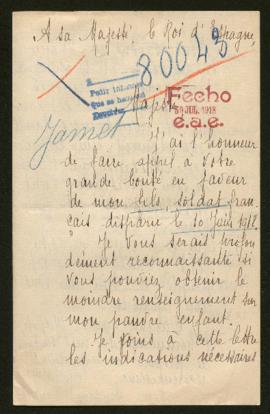 A sa Majesté, le Roi d'Espagne,
80043
Pedir
que se
Jamet
Fecho
30 JUL. 1918
e.a.e.
J'ai l'honneur
de faire appel à votre
grande bonté en faveur
de mon fils, soldat fran
çais disparu le 10 Juin 1918.
Je vous serais profon
dément reconnaissante si
vous pouviez obtenir le
moindre renseignement sur
mon pauvre enfant.
Je joins à cette lettre
les indications nécessaires